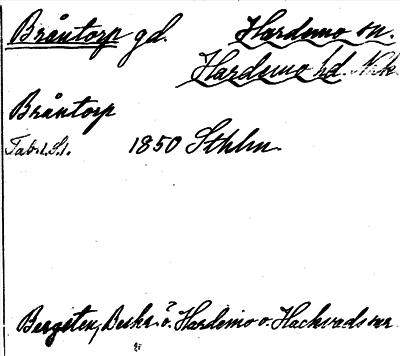 Bråntorp gd. Hardemo sn.
Hardemo hd. Nrk.
Bråntorp
Tab. t. S. 1. 1850 Sthlm.
Bergsten, Beskr. ö. Hardemo o. Hackvads snr